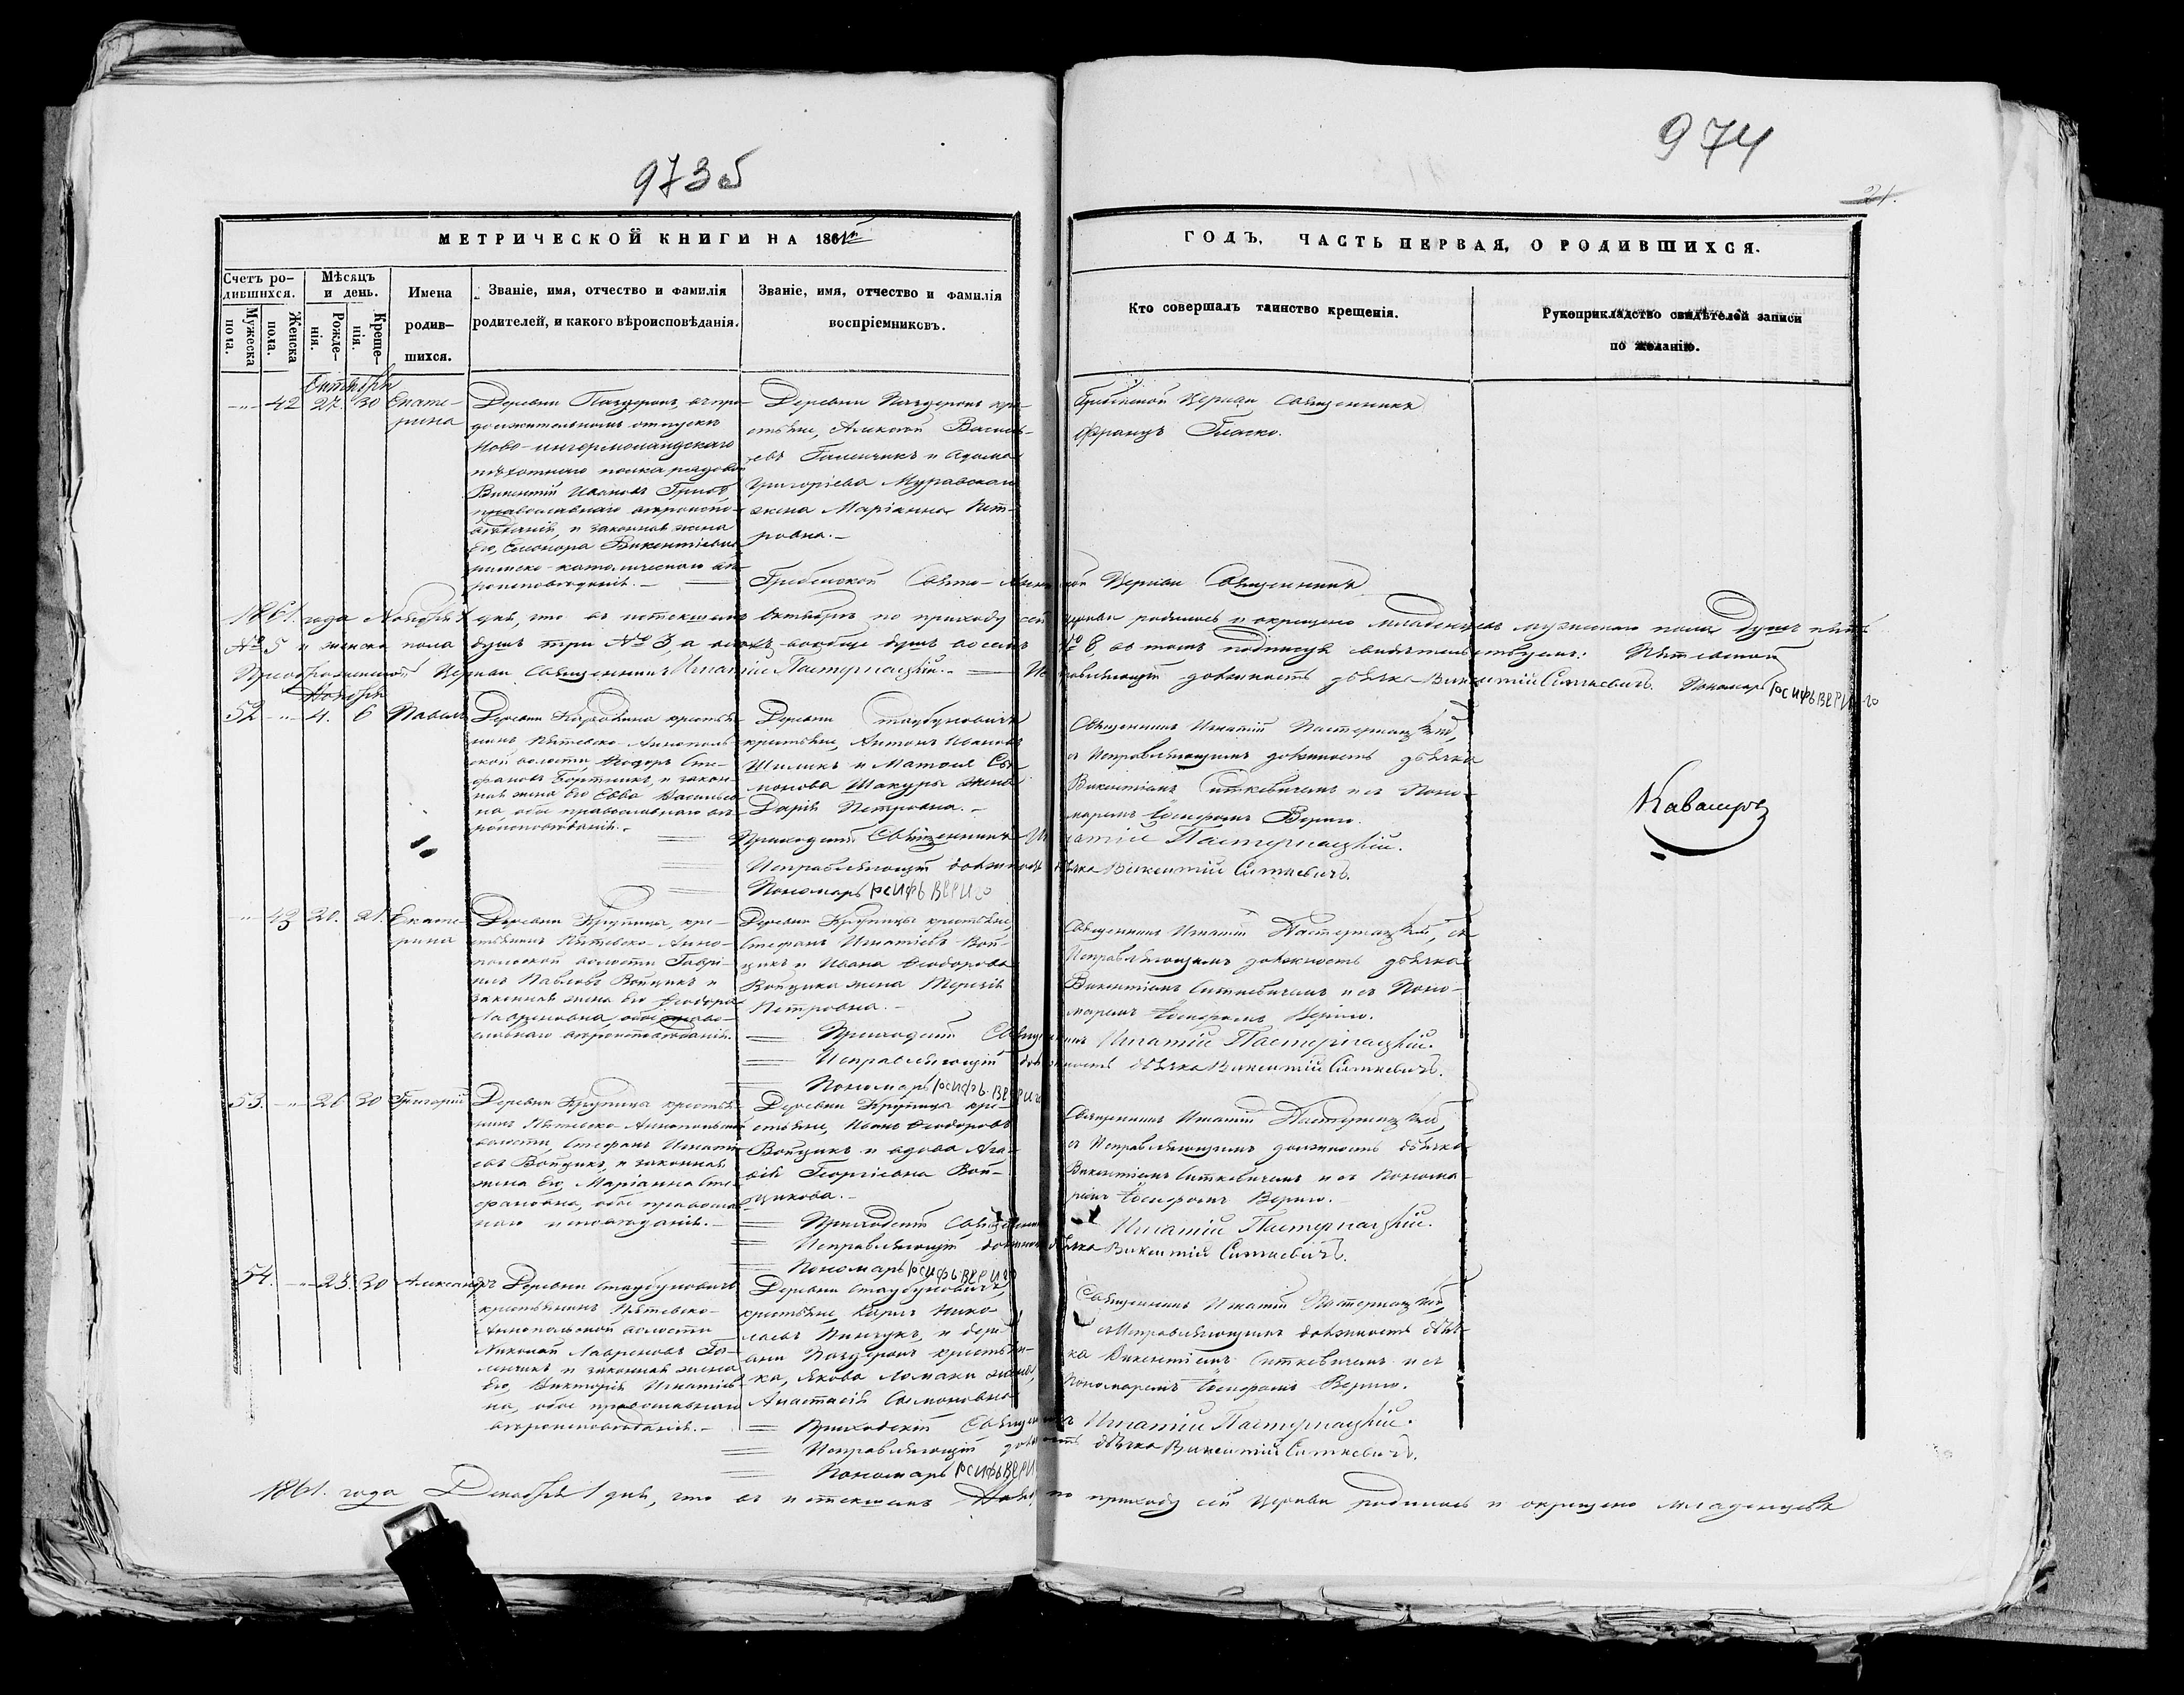 973б
974
21.
МЕТРИЧЕСКОЙ КНИГИ НА 1861й
ГОДЪ, ЧАСТЬ ПЕРВАЯ, О РОДИВШИХСЯ.
Счетъ ро-
дившихся.
Мужеска
пола.
Женска
пола.
Мѣсяцъ
и день.
Рожде-
нія.
Креще-
нія.
Имена
родив-
шихся.
Званіе, имя, отчество и фамилія
родителей, и какого вѣроисповѣданія.
Званіе, имя, отчество и фамилія
воспріемниковъ.
Кто совершалъ таинство крещенія.
Рукоприкладство свидѣтелей записи
по желанію.
Октябрь
42 27. 30 Екате-
рина
Деревни Паздеронъ, въ про-
должительномъ отпуску
Ново-ингерманландскаго
пѣхотнаго полка рядовой
Викентій Ивановъ
православнаго вѣроиспо-
вѣданія, и законная жена
его, Елеонора Викентіева
римско-католическаго вѣ-
роисповѣданія.—
Деревни Паздеронъ кре-
стьяне, Алексѣй Василь-
евъ и Адама
Григоріева Муравскаго
жена Маріанна Пет-
ровна.—
церкви Священникъ
Францъ Гласко.
Церкви Священникъ
1861. года Ноября 1 дня, что въ истекшемъ Октябрѣ по приходу сей церкви родилось и окрещено младенцевъ мужескаго пола душъ пять
№ 5 и женска пола душъ три № 3, а всѣхъ вообще душъ восемь № 8, въ томъ подписуя свидѣтельствуемъ:
Преображенской Церкви Священникъ Игнатій Пастернацкій.— Исправляющій должность дьячка Викентій Ситкевичъ. Пономарь Іосифъ Вериго
Ноябрь
52 4. 6 Павелъ
Деревни крестья-
нинъ Пятевско-Аннополь-
ской волости Ѳеодоръ Сте-
фановъ Бортникъ, и закон-
ная жена его Евва Васильев-
на, обое православнаго вѣ-
роисповѣданія.—
Деревни Стаубуновичъ
крестьяне, Антонъ Ивановъ
и Матвея Си-
монова жена
Дарія Петровна.—
Священникъ Игнатій Пастернацкій,
съ Исправляющимъ должность дьячка
Викентіемъ Ситкевичемъ и съ Поно-
маремъ Іосифомъ Вериго.
Приходскій Священникъ Игнатій Пастернацкій.
Исправляющій должность дьячка Викентій Ситкевичъ.
Пономарь Іосифъ Вериго
43 20. 21. Екате-
рина
Деревни Крупицы, кре-
стьянинъ Пятевско-Анно-
польской волости Гаврі-
илъ Павловъ Войцикъ и
законная жена его Ѳеодора
Лавреновна, обое право-
славнаго вѣроисповѣданія.
Деревни Крупицы крестьяне,
Стефанъ Игнатіевъ Вой-
цикъ и Ивана Ѳеодорова
Войцика жена Терезія
Петровна.—
Священникъ Игнатій Пастернацкій, съ
Исправляющимъ должность дьячка
Викентіемъ Ситкевичемъ и съ Поно-
маремъ Іосифомъ Вериго.
Приходскій Священникъ Игнатій Пастернацкій.
Исправляющій должность дьячка Викентій Ситкевичъ.
Пономарь Іосифъ Вериго
53. 26 30 Григорій
Деревни Крупицы крестья-
нинъ Пятевско-Аннопольской
волости, Стефанъ Игнаті-
евъ Войцикъ, и законная
жена его, Маріанна Сте-
фановна, обое православ-
наго исповѣданія.—
Деревни Крупицы кре-
стьяне, Иванъ Ѳеодоровъ
Войцикъ и вдова Ага-
фія Георгіевна Вой-
цикова.—
Священникъ Игнатій Пастернацкій,
съ Исправляющимъ должность дьячка
Викентіемъ Ситкевичемъ и съ Понома-
ремъ Іосифомъ Вериго.—
Приходскій Священникъ Игнатій Пастернацкій.
Исправляющій должность дьячка Викентій Ситкевичъ.
Пономарь Іосифъ Вериго
54. 30 Александръ
Деревни Стаубуновичъ
крестьянинъ Пятевско-
Аннопольской волости
Николай Лавреновъ
и законная жена
его, Викторія Игнатьев-
на, обое православнаго
вѣроисповѣданія.—
Деревни Стаубуновичъ,
крестьяне, Карлъ Нико-
лаевъ Пинчукъ, и дере-
вни Паздеронъ крестьяни-
на, Якова Ломаки жена,
Анастасія Симоновна
Священникъ Игнатій Пастернацкій,
съ Исправляющимъ должность дьяч-
ка Викентіемъ Ситкевичемъ и съ
Пономаремъ Іосифомъ Вериго.
Приходскій Священникъ Игнатій Пастернацкій.
Исправляющій должность дьячка Викентій Ситкевичъ.
Пономарь Іосифъ Вериго
1861. года Декабря 1 дня, что въ истекшемъ по приходу сей Церкви родилось и окрещено младенцевъ